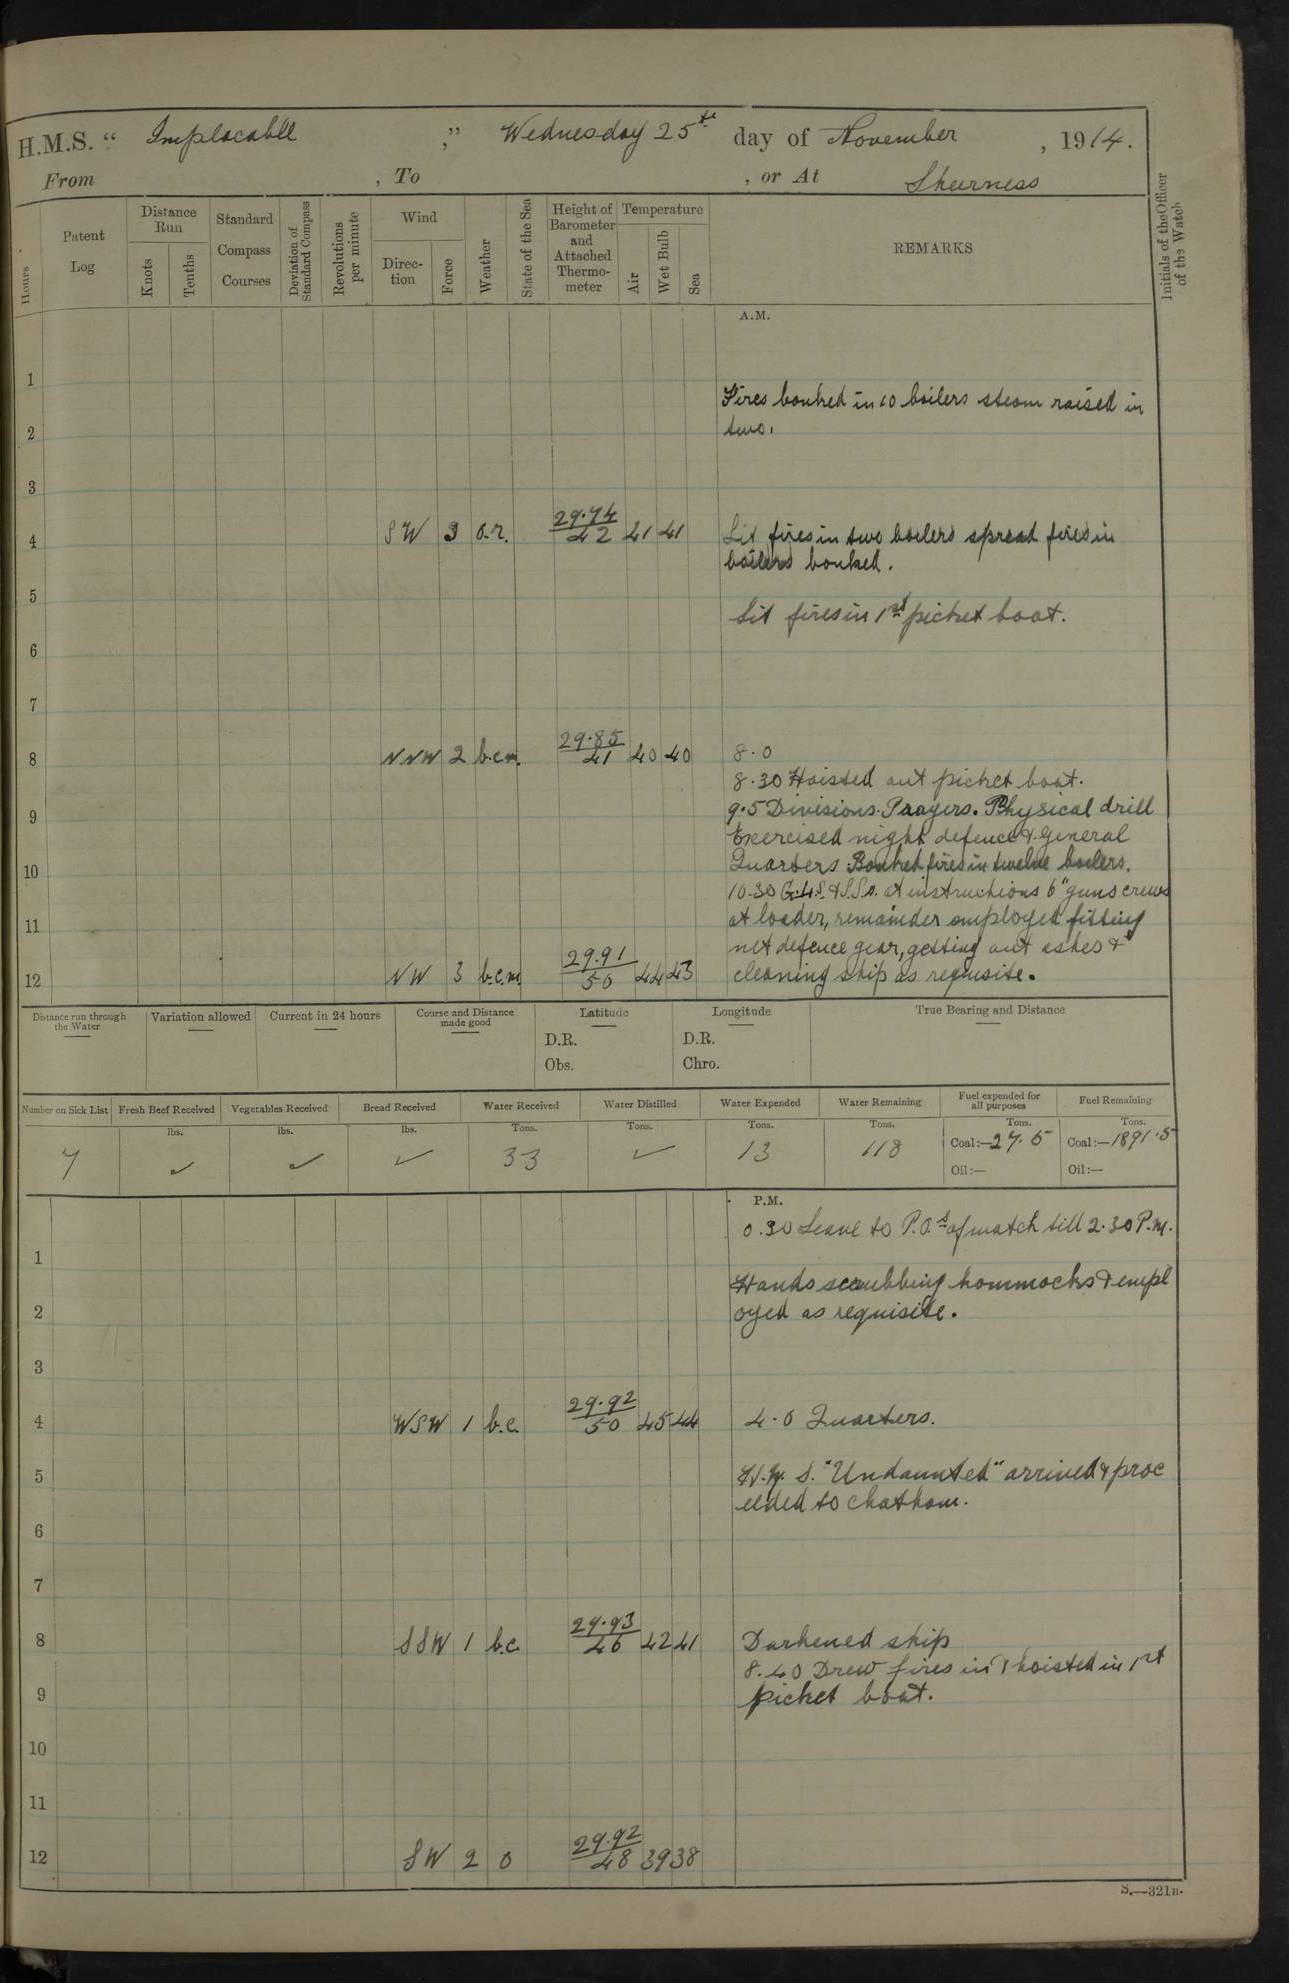 H.M.S. “ Implacable ,” Wednesday 25th day of November , 1914.
From , To , or At Sheerness
Hours
Patent Log
Distance Run
Knots
Tenths
Standard Compass Courses
Deviation of Standard Compass
Revolutions per minute
Wind
Direc-tion
Force
Weather
State of the Sea
Height of Barometer and Attached Thermo-meter
Temperature
Air
Wet Bulb
Sea
REMARKS
Initials of the Officer of the Watch
A.M.
1
Fires banked in 10 boilers steam raised in
2 two.
3
4 SW 3 o.r. 29.74 42 41 41 Lit fires in two boilers spread fires in
boilers banked.
5
Lit fires in 1st picket boat.
6
7
8 NNW 2 b.c.m. 29.85 41 40 40 8.0
8.30 Hoisted out picket boat.
9 9.5 Divisions. Prayers. Physical drill
Exercised night defence & General
10 Quarters Banked fires in twelve boilers.
10.30 G.L.S. & S.S.s. at instructions 6" guns crews
11 at loader, remainder employed fitting
net defence gear, getting out ashes &
12 NW 3 b.c.m. 29.91 50 44 43 cleaning ship as requisite.
Distance run through the Water
Variation allowed
Current in 24 hours
Course and Distance made good
Latitude
D.R.
Obs.
Longitude
D.R.
Chro.
True Bearing and Distance
Number on Sick List
Fresh Beef Received
Vegetables Received
Bread Received
Water Received
Water Distilled
Water Expended
Water Remaining
Fuel expended for all purposes
Fuel Remaining
lbs. lbs. lbs. Tons. Tons. Tons. Tons. Tons. Tons.
7 ✓ ✓ ✓ 33 ✓ 13 118 Coal:—27.5 Coal:—1891.5
Oil:— Oil:—
P.M.
0.30 Leave to P.O.s of watch till 2.30 P.M.
1
Hands scrubbing hammocks & empl
2 oyed as requisite.
3
4 WSW 1 b.c. 29.92 50 45 44 4.0 Quarters.
5 H.M.S. "Undaunted" arrived & proc
eeded to Chatham.
6
7
8 SSW 1 b.c. 29.93 46 42 41 Darkened ship
8.40 Drew fires in & hoisted in 1st
9 picket boat.
10
11
12 SW 2 o 29.92 48 39 38
S.—321B.